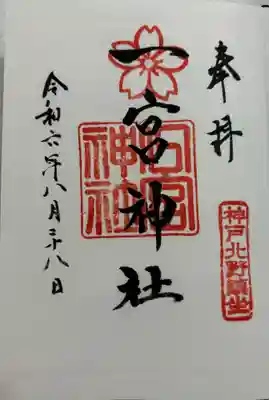 奉拝
神戸北野鎮坐
一宮神社
一宮神社
令和六年八月二十八日